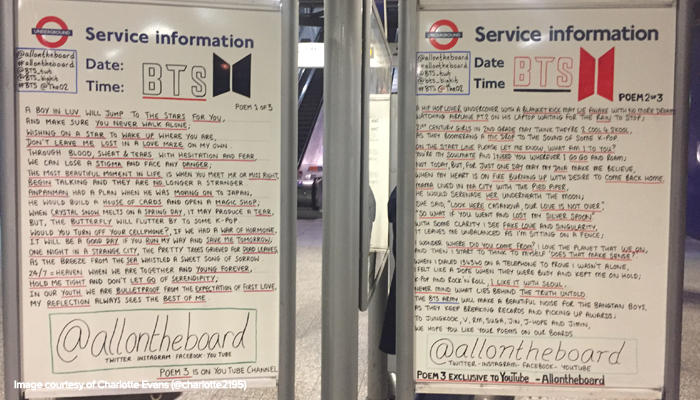 UNDERGROUND
Service information
@allontheboard
#allontheboard
@BTS_twt
@bts_bighit
#BTS @TheO2
Date:
Time:
BTS
POEM 1 OF 3
A BOY IN LUV WILL JUMP TO THE STARS FOR YOU,
AND MAKE SURE YOU NEVER WALK ALONE;
WISHING ON A STAR TO WAKE UP WHERE YOU ARE,
DON'T LEAVE ME LOST IN A LOVE MAZE ON MY OWN.
THROUGH BLOOD, SWEAT & TEARS WITH HESITATION AND FEAR,
WE CAN LOSE A STIGMA AND FACE ANY DANGER;
THE MOST BEAUTIFUL MOMENT IN LIFE, IS WHEN YOU MEET MR OR MISS RIGHT,
BEGIN TALKING AND THEY ARE NO LONGER A STRANGER
ANPANMAN HAD A PLAN WHEN HE WAS MOVING ON TO JAPAN,
HE WOULD BUILD A HOUSE OF CARDS AND OPEN A MAGIC SHOP;
WHEN CRYSTAL SNOW MELTS ON A SPRING DAY, IT MAY PRODUCE A TEAR,
BUT, THE BUTTERFLY WILL FLUTTER BY TO SOME K-POP
WOULD YOU TURN OFF YOUR CELLPHONE?, IF WE HAD A WAR OF HORMONE,
IT WILL BE A GOOD DAY IF YOU RUN MY WAY AND SAVE ME TOMORROW;
ONE NIGHT IN A STRANGE CITY, THE PRETTY TREES GRIEVED FOR DEAD LEAVES,
AS THE BREEZE FROM THE SEA WHISTLED A SWEET SONG OF SORROW
24/7 = HEAVEN WHEN WE ARE TOGETHER AND YOUNG FOREVER,
HOLD ME TIGHT AND DON'T LET GO OF SERENDIPITY;
IN OUR YOUTH WE ARE BULLETPROOF FROM THE EXPECTATION OF FIRST LOVE,
MY REFLECTION ALWAYS SEES THE BEST OF ME
@allontheboard
TWITTER · INSTAGRAM · FACEBOOK · YOU TUBE
POEM 3 IS ON YOU TUBE CHANNEL
Image courtesy of Charlotte Evans (@charlotte2195)
UNDERGROUND
Service information
@allontheboard
#allontheboard
@BTS_twt
@bts_bighit
#BTS @TheO2
Date
Time
BTS
POEM 2 OF 3
A HIP HOP LOVER UNDERCOVER WITH A BLANKET KICK MAY LIE AWAKE WITH NO MORE DREAM
WATCHING AIRPLANE PT.2 ON HIS LAPTOP WAITING FOR THE RAIN TO STOP;
21ST CENTURY GIRLS IN 2ND GRADE MAY THINK THEY'RE 2 COOL 4 SKOOL,
AS THEY BOOMERANG A MIC DROP TO THE SOUND OF SOME K-POP
ON THE START LINE PLEASE LET ME KNOW, WHAT AM I TO YOU?
YOU'RE MY SOULMATE AND I NEED YOU WHEREVER I GO GO AND ROAM;
NOT TODAY, BUT, FOR JUST ONE DAY MAY MY DNA MAKE ME BELIEVE,
WHEN MY HEART IS ON FIRE BURNING UP WITH DESIRE TO COME BACK HOME.
MAMA LIVED IN MA CITY WITH THE PIED PIPER,
HE WOULD SERENADE HER UNDERNEATH THE MOON;
SHE SAID, "LOOK HERE CASANOVA, OUR LOVE IS NOT OVER"
"SO WHAT IF YOU WENT AND LOST MY SILVER SPOON"
WITH SOME CLARITY I SEE FAKE LOVE AND SINGULARITY,
IT LEAVES ME UNBALANCED AS I'M SITTING ON A FENCE;
I WONDER WHERE DID YOU COME FROM? I LOVE THE PLANET THAT WE ON,
AND THEN I START TO THINK TO MYSELF "DOES THAT MAKE SENSE?"
WHEN I DIALED ON A TELEPHONE TO PROVE I WASN'T ALONE,
I FELT LIKE A DOPE WHEN THEY WERE BUSY AND KEPT ME ON HOLD;
K-POP AND ROCK 'N' ROLL, I LIKE IT WITH SEOUL,
NEVER MIND WHAT LIES BEHIND THE TRUTH UNTOLD
THE BTS ARMY WILL MAKE A BEAUTIFUL NOISE FOR THE BANGTAN BOYS,
AS THEY KEEP BREAKING RECORDS AND PICKING UP AWARDS;
TO JUNGKOOK, V, RM, SUGA, JIN, J-HOPE AND JIMIN,
WE HOPE YOU LIKE YOUR POEMS ON OUR BOARDS
@allontheboard
TWITTER · INSTAGRAM · FACEBOOK · YOU TUBE
POEM 3 EXCLUSIVE TO YouTube - Allontheboard